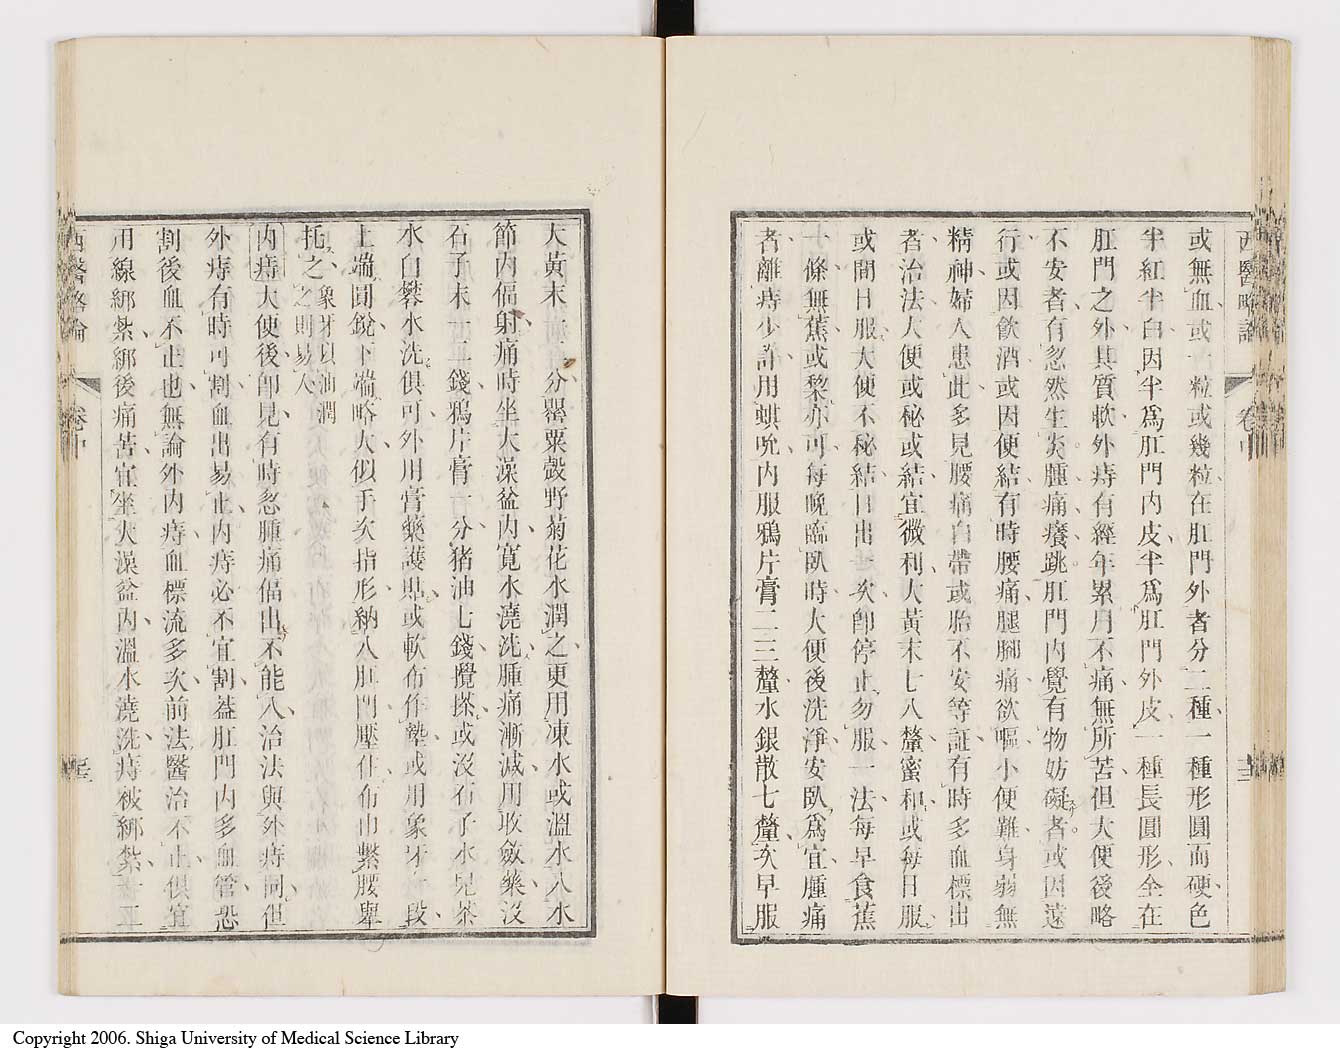 西醫略論
卷中
或無血或一粒或幾粒在肛門外者分二種一種形圓而硬色
半紅半白因半爲肛門內皮半爲肛門外皮一種長圓形全在
肛門之外其質軟外痔有經年累月不痛無所苦但大便後略
不安者有忽然生炎腫痛癢跳肛門內覺有物妨礙者或因遠
行或因飲酒或因便結有時腰痛腿腳痛欲嘔小便難身弱無
精神婦人患此多見腰痛白帶或胎不安等証有時多血標出
者治法大便或秘或結宜微利大黃末七八釐蜜和或每日服
或間日服大便不秘結日出一次卽停止勿服一法每早食蕉
一條無蕉或梨亦可每晚臨臥時大便後洗淨安臥爲宜腫痛
者離痔少許用蜞吮內服鴉片膏二三釐水銀散七釐次早服
大黃末分罌粟殼野菊花水潤之更用凍水或溫水入水
節內偪射痛時坐大澡盆內寬水澆洗腫痛漸減用收斂藥沒
石子末一二錢鴉片膏一分豬油七錢攪搽或沒石子水兒茶
水白礬水洗俱可外用膏藥護貼或軟布作墊或用象牙一段
上端圓銳下端略大似手次指形納入肛門壓住布巾繫腰舉
托之象牙以油潤之則易入
內痔大便後卽見有時忽腫痛偪出不能入治法與外痔同但
外痔有時可割血出易止內痔必不宜割葢肛門內多血管恐
割後血不止也無論外內痔血標流多次前法醫治不止俱宜
用線綁紮綁後痛苦宜坐大澡盆內溫水澆洗痔被綁紮
西醫略論
卷中